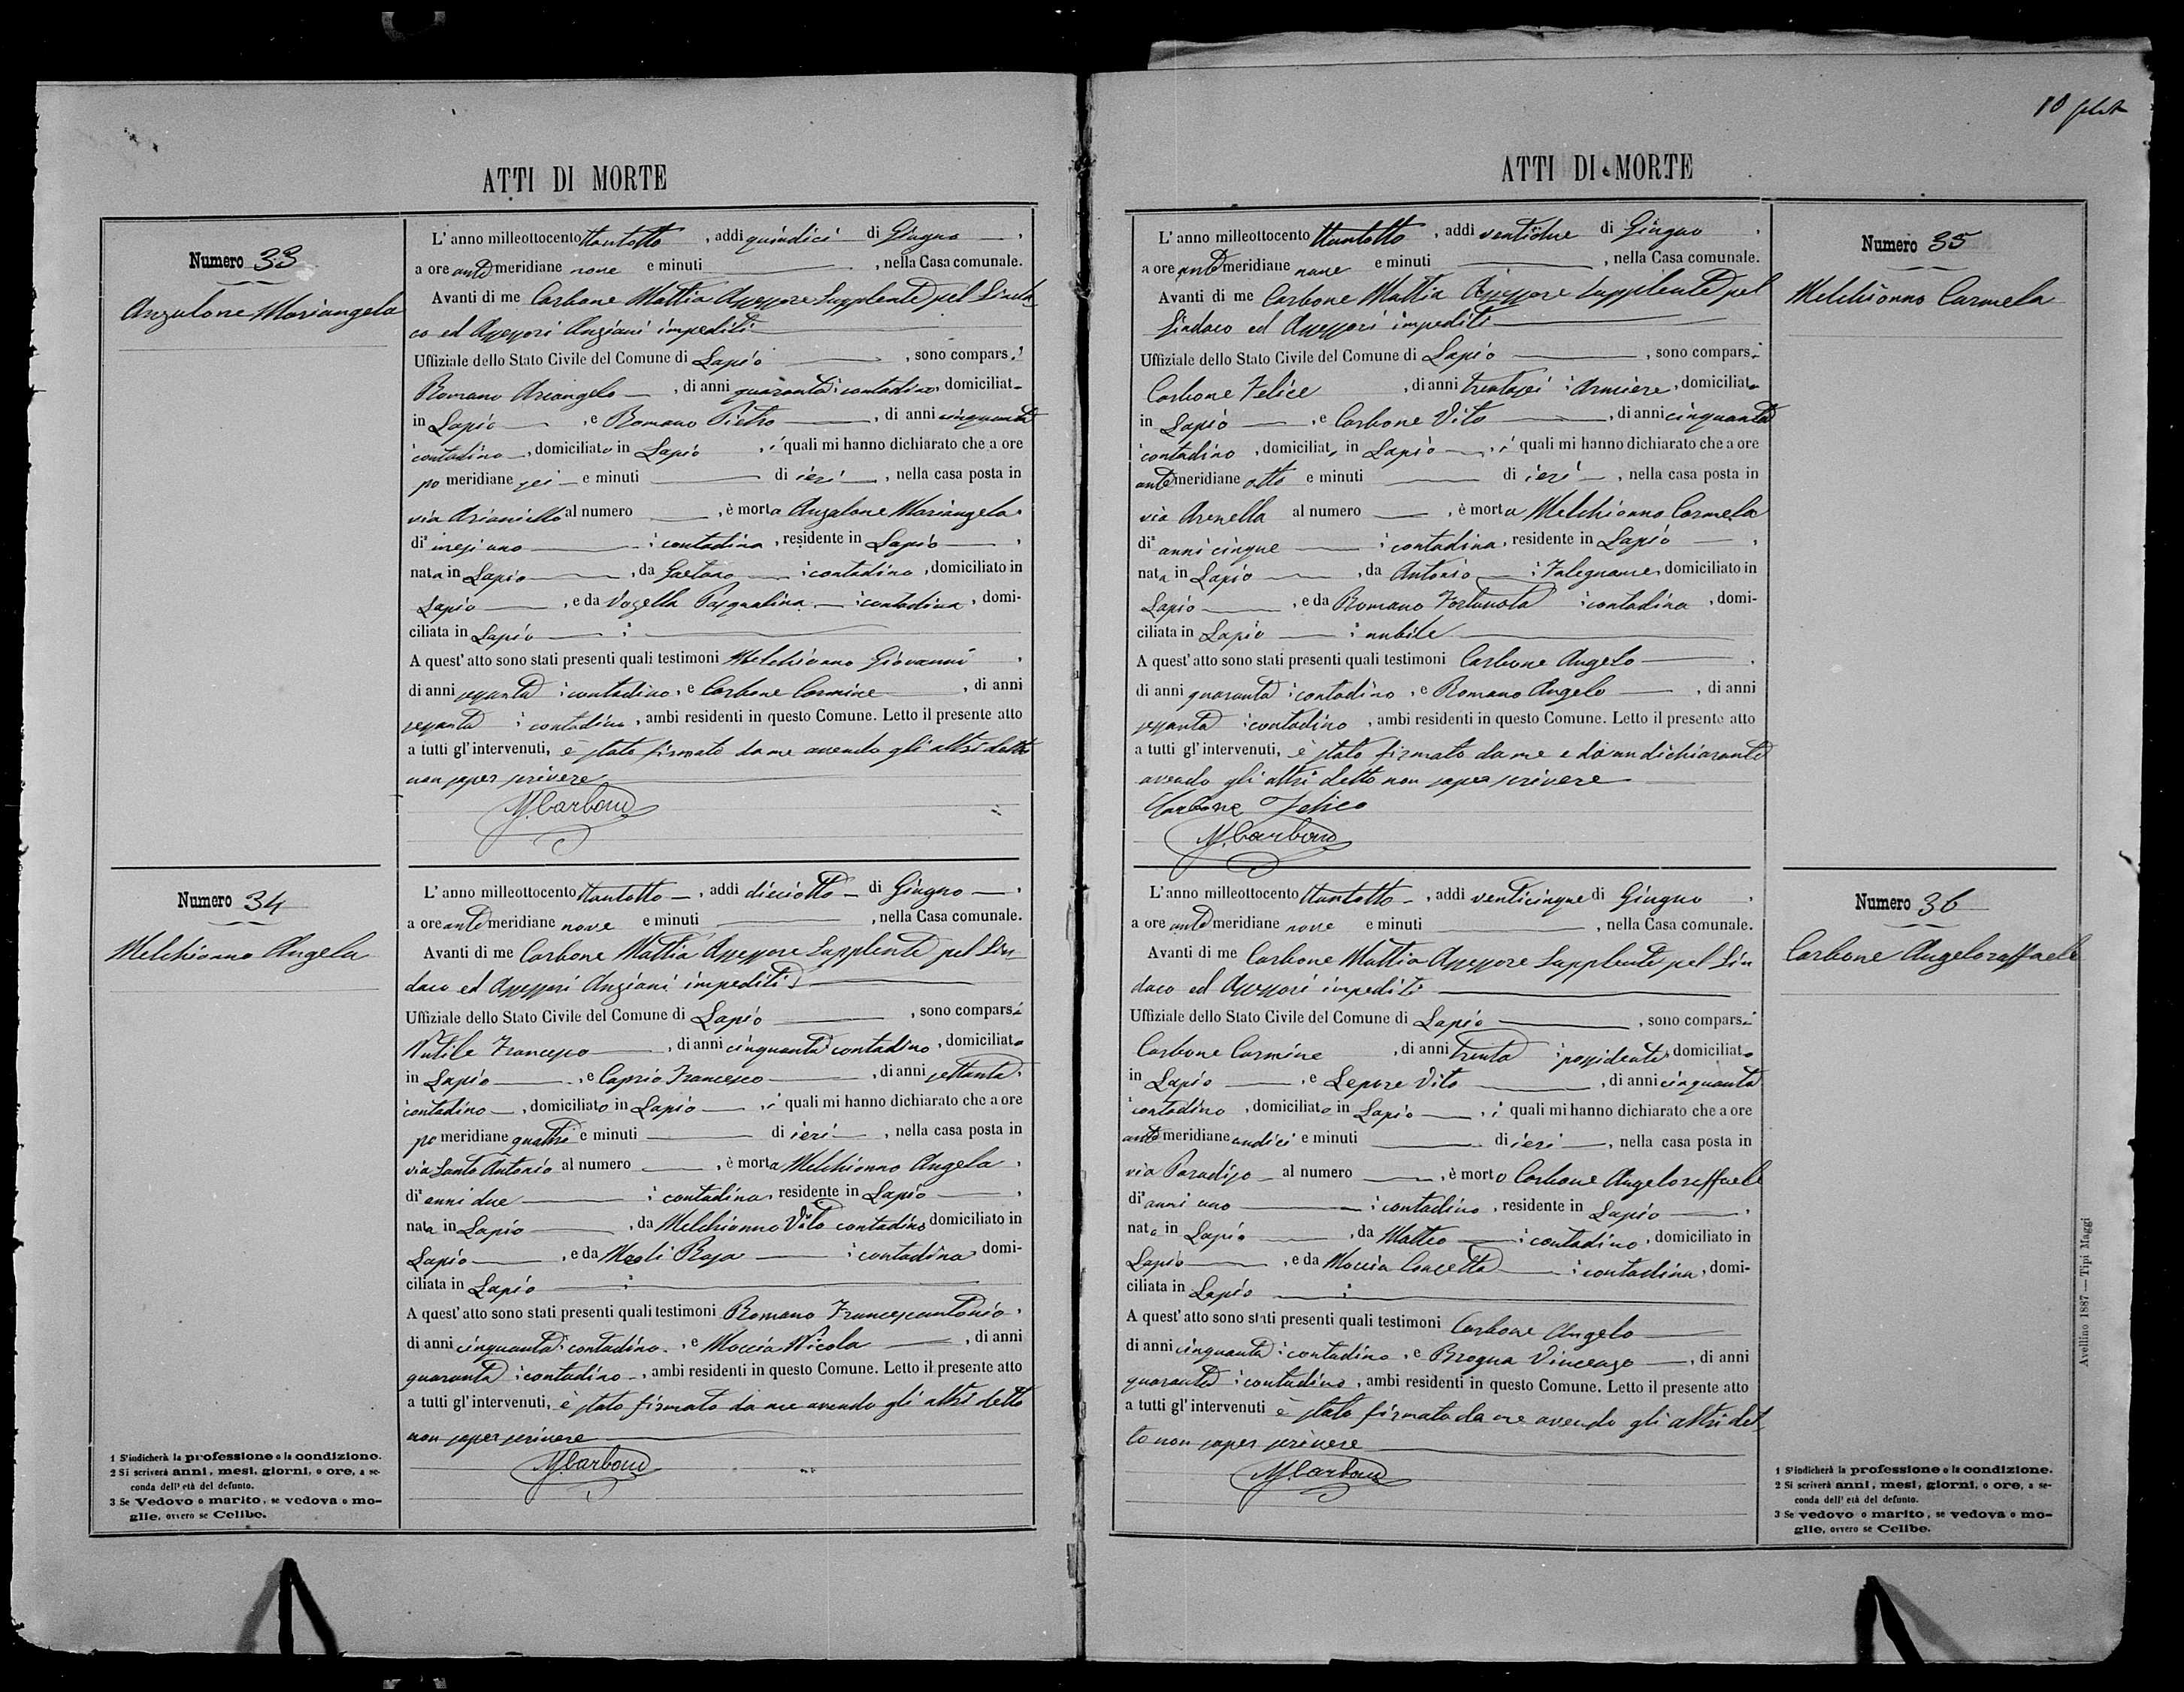 ATTI DI MORTE
Numero 33
Anzalone Mariangela
L' anno milleottocento ttantotto, addi quindici di Giugno,
a ore ante meridiane nove e minuti, nella Casa comunale.
Avanti di me Carbone Mattia Assessore Supplente pel Sinda
co ed Assessori Anziani impediti
Uffiziale dello Stato Civile del Comune di Lapio, sono comparsi
Romano Arcangelo, di anni quaranta contadino, domiciliato
in Lapio, e Romano Pietro, di anni cinquanta
contadino, domiciliato in Lapio, i quali mi hanno dichiarato che a ore
po meridiane sei e minuti di ieri, nella casa posta in
via Arianiello al numero, è morta Anzalone Mariangela
di mesi uno contadina, residente in Lapio,
nata in Lapio, da Gaetano contadino, domiciliato in
Lapio, e da Vozella Pasqualina contadina, domi-
ciliata in Lapio
A quest' atto sono stati presenti quali testimoni Melchionno Giovanni
di anni sessanta contadino, e Carbone Carmine, di anni
sessanta contadino, ambi residenti in questo Comune. Letto il presente atto
a tutti gl' intervenuti, è stato firmato da me avendo gli altri detto
non saper scrivere
M. Carbone
Numero 34
Melchionno Angela
L' anno milleottocento ttantotto, addi dieciotto di Giugno,
a ore ante meridiane nove e minuti, nella Casa comunale.
Avanti di me Carbone Mattia Assessore Supplente pel Sin
daco ed Assessori Anziani impediti
Uffiziale dello Stato Civile del Comune di Lapio, sono comparsi
Nutile Francesco, di anni cinquanta contadino, domiciliato
in Lapio, e Caprio Francesco, di anni settanta
contadino, domiciliato in Lapio, i quali mi hanno dichiarato che a ore
po meridiane quattro e minuti di ieri, nella casa posta in
via Santo Antonio al numero, è morta Melchionno Angela,
di anni due contadina, residente in Lapio,
nata in Lapio, da Melchionno Vito contadino domiciliato in
Lapio, e da Meoli Rosa contadina domi-
ciliata in Lapio
A quest' atto sono stati presenti quali testimoni Romano Francescantonio,
di anni cinquanta contadino, e Moccia Nicola, di anni
quaranta contadino, ambi residenti in questo Comune. Letto il presente atto
a tutti gl' intervenuti, è stato firmato da me avendo gli altri detto
non saper scrivere
M. Carbone
1 S'indicherà la professione o la condizione.
2 Si scriverà anni, mesi, giorni, o ore, a se-
conda dell' età del defunto.
3 Se Vedovo o marito, se vedova o mo-
glie, ovvero se Celibe.
10
ATTI DI MORTE
Numero 35
Melchionno Carmela
L' anno milleottocento ttantotto, addi ventidue di Giugno,
a ore ante meridiane nove e minuti, nella Casa comunale.
Avanti di me Carbone Mattia Assessore Supplente pel
Sindaco ed Assessori impediti
Uffiziale dello Stato Civile del Comune di Lapio, sono comparsi
Carbone Felice, di anni trentasei Armiere, domiciliato
in Lapio, e Carbone Vito, di anni cinquanta
contadino, domiciliato in Lapio, i quali mi hanno dichiarato che a ore
ante meridiane otto e minuti di ieri, nella casa posta in
via Arenella al numero, è morta Melchionno Carmela
di anni cinque contadina, residente in Lapio,
nata in Lapio, da Antonio Falegname, domiciliato in
Lapio, e da Romano Fortunata contadina, domi-
ciliata in Lapio nubile
A quest' atto sono stati presenti quali testimoni Carbone Angelo
di anni quaranta contadino, e Romano Angelo, di anni
sessanta contadino, ambi residenti in questo Comune. Letto il presente atto
a tutti gl' intervenuti, è stato firmato da me e da un dichiarante
avendo gli altri detto non saper scrivere
Carbone Felice
M. Carbone
Numero 36
Carbone Angeloraffaele
L' anno milleottocento ttantotto, addi venticinque di Giugno,
a ore ante meridiane nove e minuti, nella Casa comunale.
Avanti di me Carbone Mattia Assessore Supplente pel Sin
daco ed Assessori impediti
Uffiziale dello Stato Civile del Comune di Lapio, sono comparsi
Carbone Carmine, di anni trenta possidente, domiciliato
in Lapio, e Lepore Vito, di anni cinquanta
contadino, domiciliato in Lapio, i quali mi hanno dichiarato che a ore
ante meridiane undici e minuti di ieri, nella casa posta in
via Paradiso al numero, è morto Carbone Angeloraffaele
di anni uno contadino, residente in Lapio,
nato in Lapio, da Matteo contadino, domiciliato in
Lapio, e da Moccia Concetta contadina, domi-
ciliata in Lapio
A quest' atto sono stati presenti quali testimoni Carbone Angelo
di anni cinquanta contadino, e Brogna Vincenzo, di anni
quaranta contadino, ambi residenti in questo Comune. Letto il presente atto
a tutti gl' intervenuti è stato firmato da me avendo gli altri det
to non saper scrivere
M. Carbone
1 S'indicherà la professione o la condizione.
2 Si scriverà anni, mesi, giorni, o ore, a se-
conda dell' età del defunto.
3 Se vedovo o marito, se vedova o mo-
glie, ovvero se Celibe.
Avellino 1887—Tipi Maggi